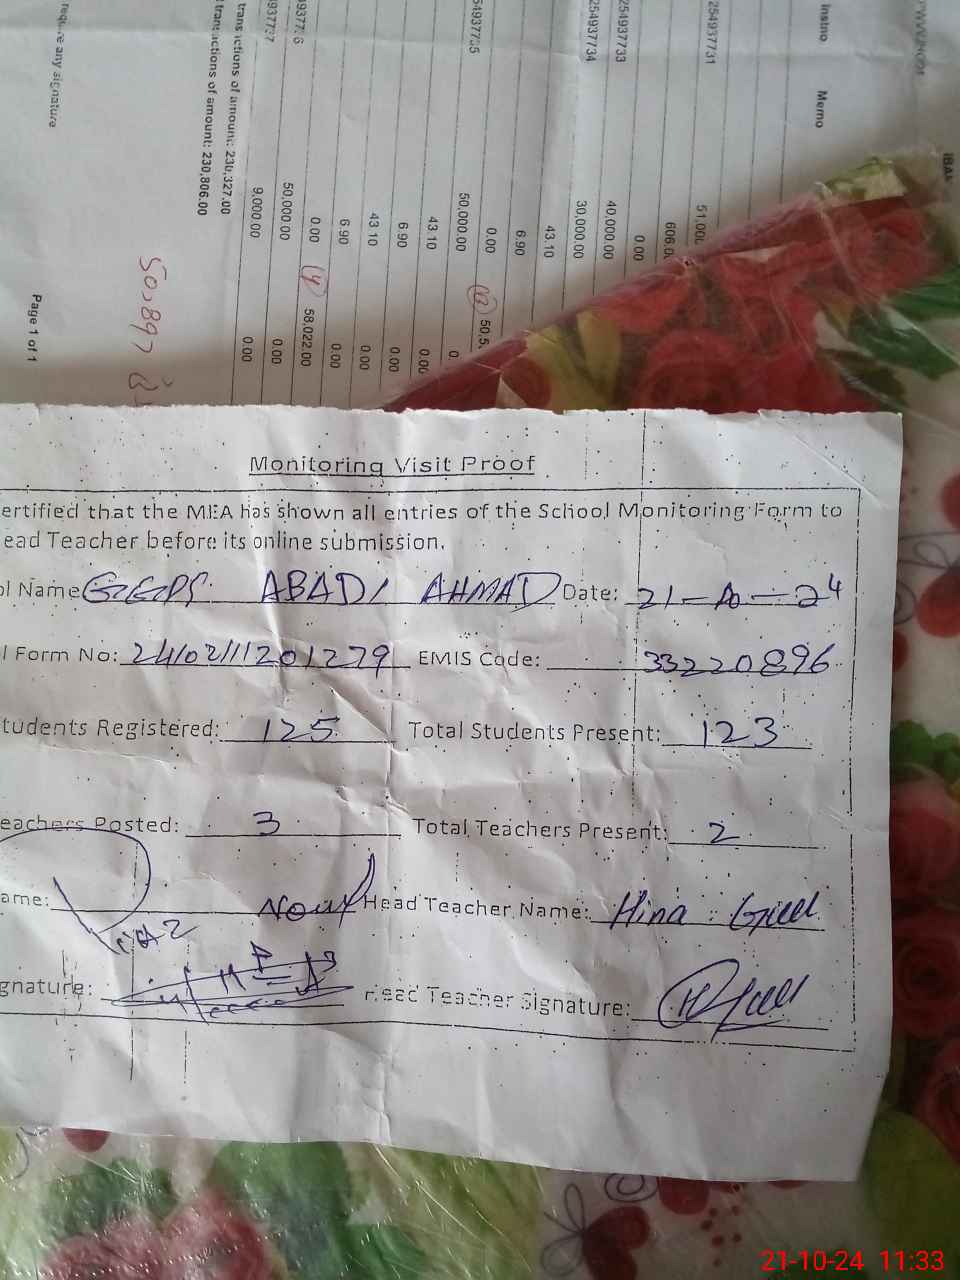 instno
Memo
254937731
254937733
254937734
54937735
require any signature
transactions of amount: 230,327.00
transactions of amount: 230,806.00
51,00
606.0
0.00
40,000.00
30,000.00
43.10
6.90
0.00
50,000.00
43.10
6.90
43.10
6.90
0.00
50,000.00
9,000.00
50,5
0.00
0.00
0.00
0.00
58,022.00
0.00
0.00
50,897
Page 1 of 1
Monitoring Visit Proof
ertified that the MEA has shown all entries of the School Monitoring Form to
ead Teacher before its online submission.
ol Name GGPS ABADI AHMAD Date: 21-10-24
l Form No: EMIS Code: 33220896
tudents Registered: 125 Total Students Present: 123
eachers Posted: 3 Total Teachers Present: 2
ame: Head Teacher Name: Hina Gull
gnature: Head Teacher Signature:
21-10-24 11:33